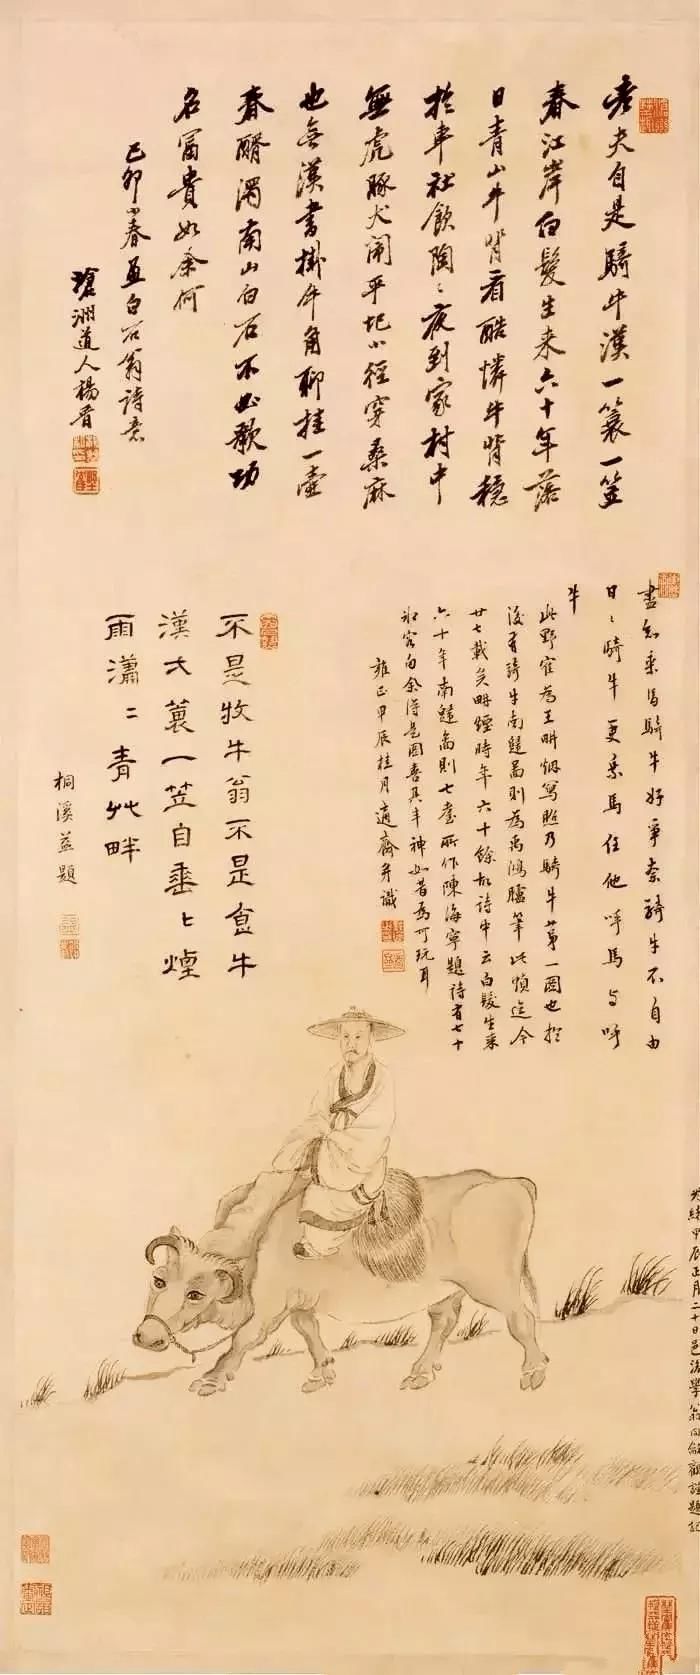 老夫自是騎牛漢一蓑一笠
春江岸白髮生来六十年落
日青山牛背看酷憐牛背穏
於車社飲陶々夜到家村中
無虎豚犬閙平圯小徑穿桑麻
也無漢書掛牛角聊挂一壺
春醑濁南山白石不必歌功
名冨貴如余何
己卯小春並白石翁诗意
瑲洲道人楊晉
盡知乘馬騎牛好爭奈騎牛不自由
日々騎牛更乘馬任他呼馬与呼
牛
此野崔為王畊烟寫照乃騎牛苐一圖也於
後有騎牛南鼪啚則為禹鴻臚筆此幀迄今
廿七載矣畊煙時年六十餘故诗中云白髮生来
六十年南鼪啚則七耋所作陳海寧題诗有七十
老客句余得是圖喜其丰神如昔為可玩耳
雍正甲辰桂月適齋并識
不是牧牛翁不是飯牛
漢大蓑一笠自垂々煙
雨瀟々青艸畔
桐溪益題
光緒甲辰正月二十日邑後學翁同龢觀謹題記